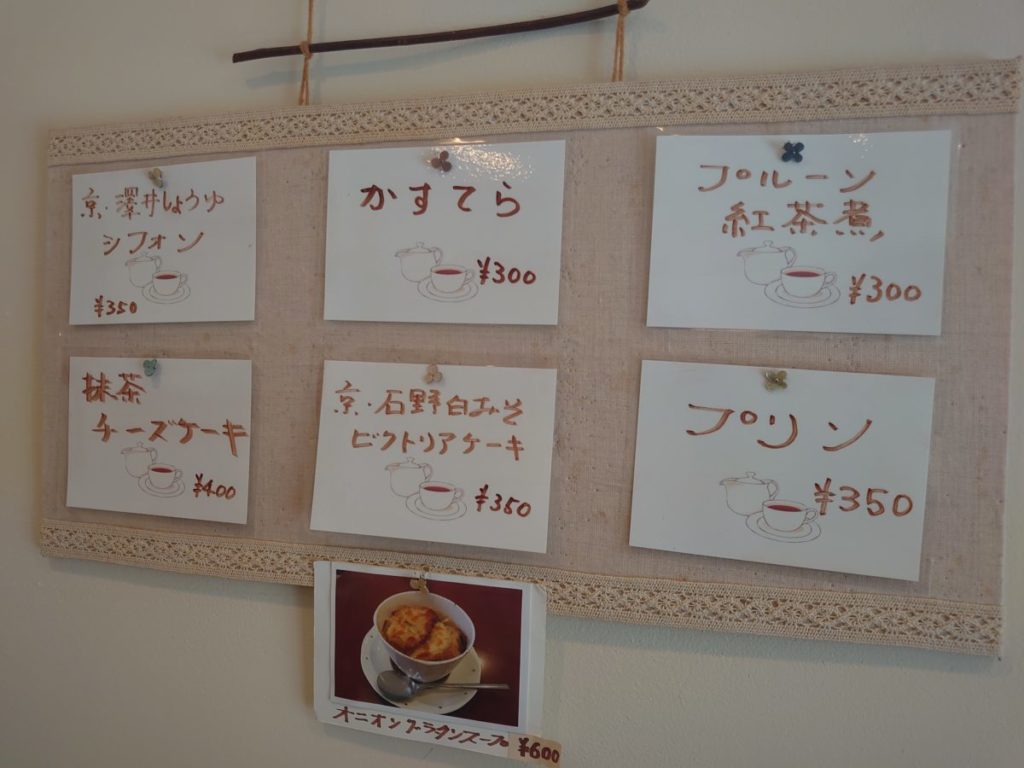 京・澤井しょうゆ
シフォン
¥350
かすてら
¥300
プルーン
紅茶煮
¥300
抹茶
チーズケーキ
¥400
京・石野白みそ
ビクトリアケーキ
¥350
プリン
¥350
オニオングラタンスープ
¥600